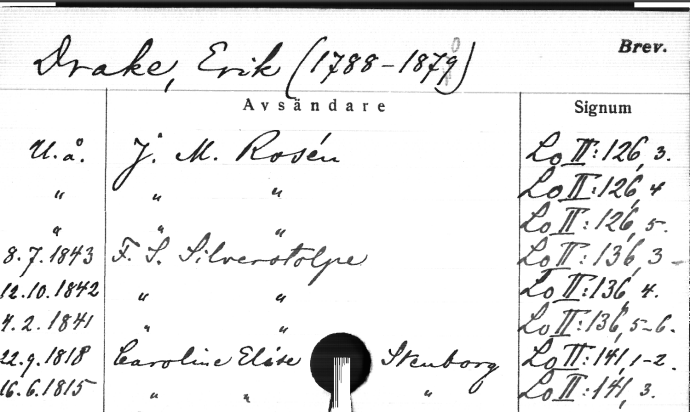 Brev.
Drake, Erik (1788-1879)
Avsändare Signum
U.å. J. M. Rosén Lo II:126, 3.
" " " Lo II:126, 4
" " " Lo II:126, 5.
8.7.1843 F. S. Silverstolpe Lo II:136, 3
12.10.1842 " " Lo II:136, 4.
4.2.1841 " " Lo II:136, 5-6.
22.9.1818 Caroline Elise Stenborg Lo II:141, 1-2.
16.6.1815 " " " Lo II:141, 3.